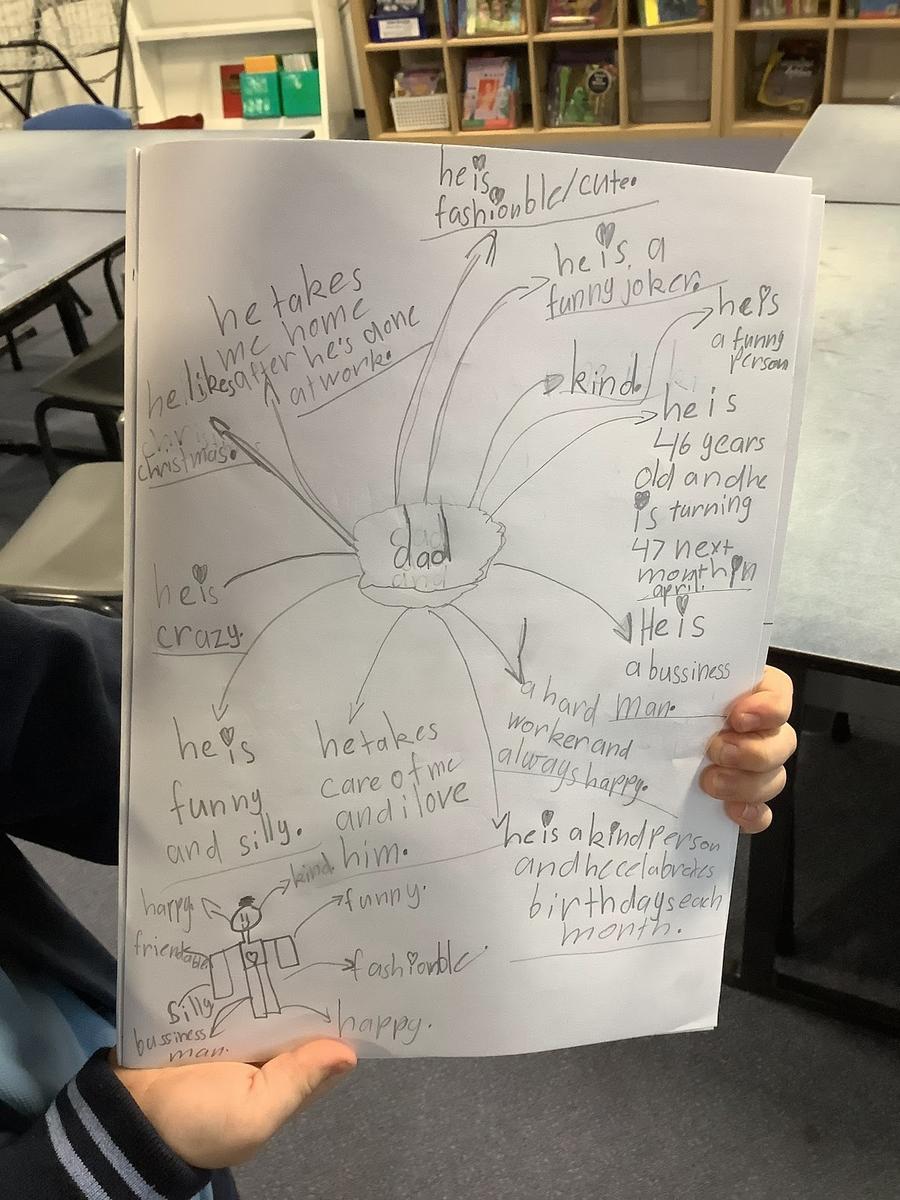 he is
fashionble/cute.
he is a
funny joker.
he is
a funny
person
kind.
he is
46 years
old and he
is turning
47 next
month in
april.
He is
a bussiness
man.
a hard
worker and
always happy.
he is a kind person
and he celabrates
birthdays each
month.
he takes
care of me
and i love
him.
he is
funny
and silly.
he is
crazy.
he likes
christmas.
he takes
me home
after he's done
at work.
dad
kind.
happy.
funny.
fashionble.
silly
bussiness
man.
happy.